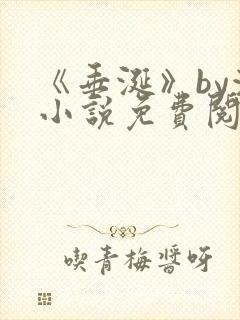 《垂涎》by
小說免費閱
喫青梅醬呀